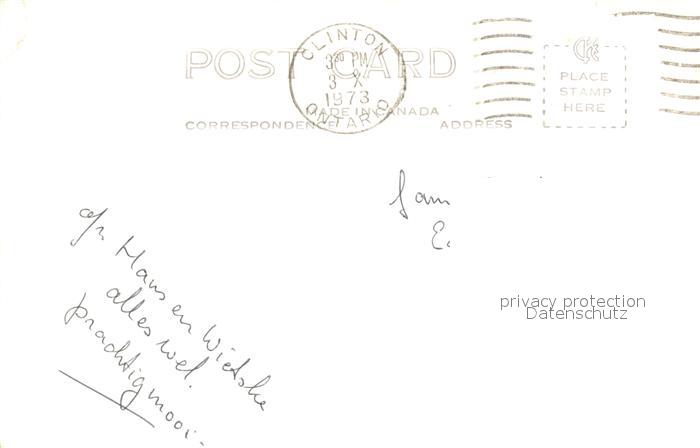 POST CARD
CLINTON
3³⁰ PM
3 X
1973
ONTARIO
MADE IN CANADA
CORRESPONDENCE ADDRESS
PLACE
STAMP
HERE
fam
E.
Hans en Wietske
alles wel.
prachtig mooi.
privacy protection
Datenschutz